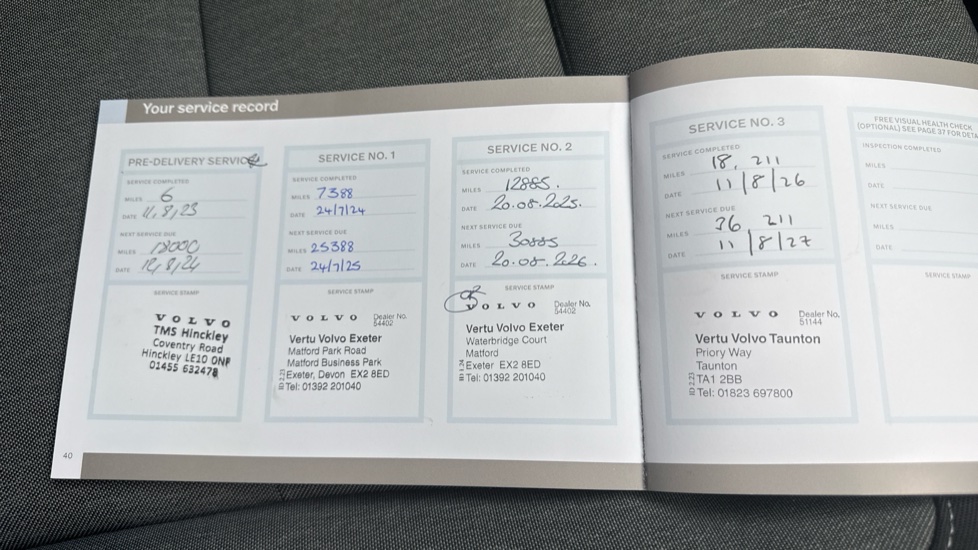 Your service record
PRE-DELIVERY SERVICE
SERVICE COMPLETED
MILES 6
DATE 11,8,23
NEXT SERVICE DUE
MILES 18000
DATE 12,8,24
SERVICE STAMP
VOLVO
TMS Hinckley
Coventry Road
Hinckley LE10 ONP
01455 632478
SERVICE NO. 1
SERVICE COMPLETED
MILES 7388
DATE 24/7/24
NEXT SERVICE DUE
MILES 25388
DATE 24/7/25
SERVICE STAMP
VOLVO Dealer No.
54402
Vertu Volvo Exeter
Matford Park Road
Matford Business Park
Exeter, Devon EX2 8ED
Tel: 01392 201040
SERVICE NO. 2
SERVICE COMPLETED
MILES 12885.
DATE 20.08.2025.
NEXT SERVICE DUE
MILES 30885
DATE 20.08.2026.
SERVICE STAMP
VOLVO Dealer No.
54402
Vertu Volvo Exeter
Waterbridge Court
Matford
Exeter EX2 8ED
Tel: 01392 201040
SERVICE NO. 3
SERVICE COMPLETED
MILES 18, 211
DATE 11/8/26
NEXT SERVICE DUE
MILES 36 211
DATE 11/8/27
SERVICE STAMP
VOLVO Dealer No.
51144
Vertu Volvo Taunton
Priory Way
Taunton
TA1 2BB
Tel: 01823 697800
FREE VISUAL HEALTH CHECK
(OPTIONAL) SEE PAGE 37 FOR
INSPECTION COMPLETED
MILES
DATE
NEXT SERVICE DUE
MILES
DATE
SERVICE STAMP
40